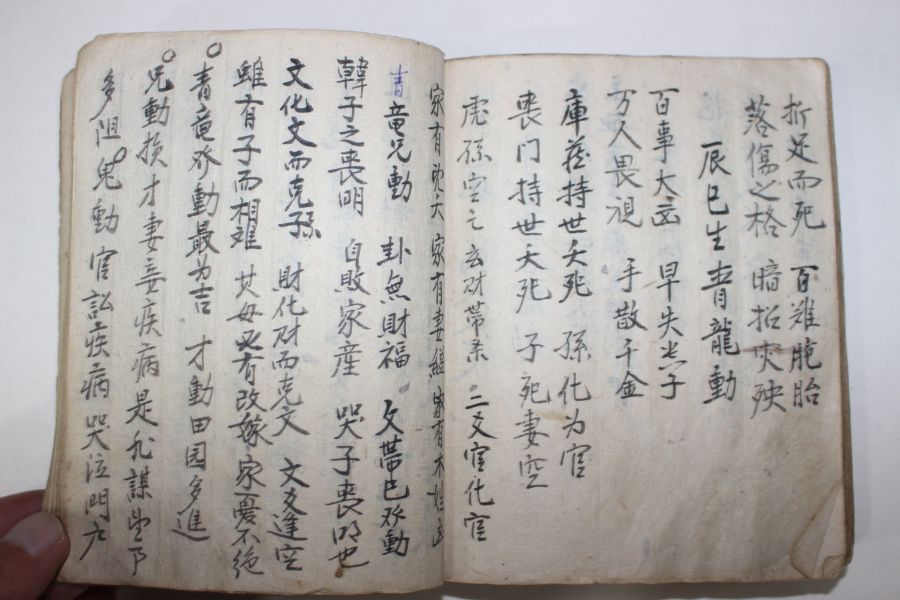 折足而死 百難胞胎
落傷之格 暗招灾殃
辰巳生青龍動
百事大 早失 子
万人畏視 手散千金
庫 持世夭死 孫化为官
喪门持世夭死 子死妻空
虎孫空亡玄財帶杀 三爻官化官
家有 家有妻 家有木姓
青竜兄動 卦無財福 文帶巳發動
韓子之喪明 自敗家産 哭子喪明也
文化文而克子孫 財化財而克文 文爻逢空
雖有子而相难 其母必有改嫁 家憂不絶
青竜發動最为吉 才動田园多進
兄動損才妻妾疾病是非謀
多阻鬼動官訟疾病哭泣門